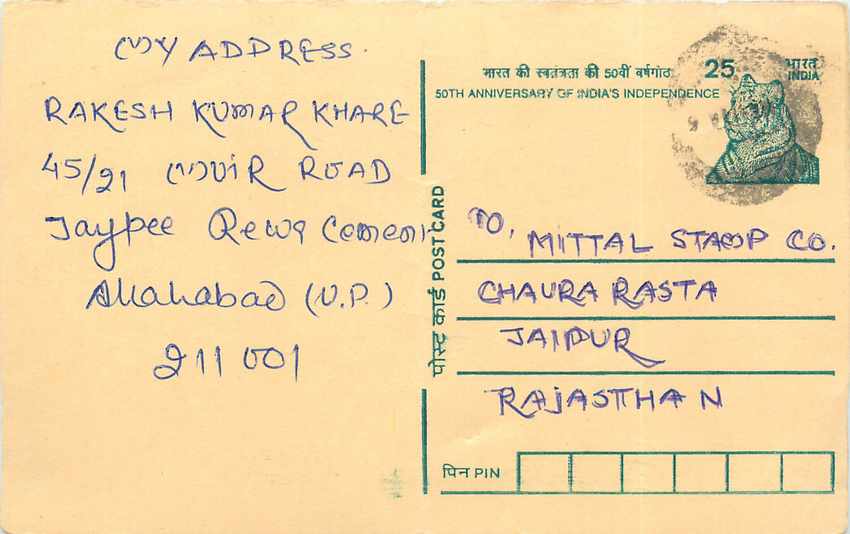 MY ADDRESS.
RAKESH KUMAR KHARE
45/21 MUIR ROAD
Jaypee Rewa Cement
Allahabad (U.P.)
211 001
भारत की स्वतंत्रता की 50वीं वर्षगांठ
50TH ANNIVERSARY OF INDIA'S INDEPENDENCE
25
भारत
INDIA
पोस्ट कार्ड POST CARD
TO,
MITTAL STAMP CO.
CHAURA RASTA
JAIPUR
RAJASTHAN
पिन PIN